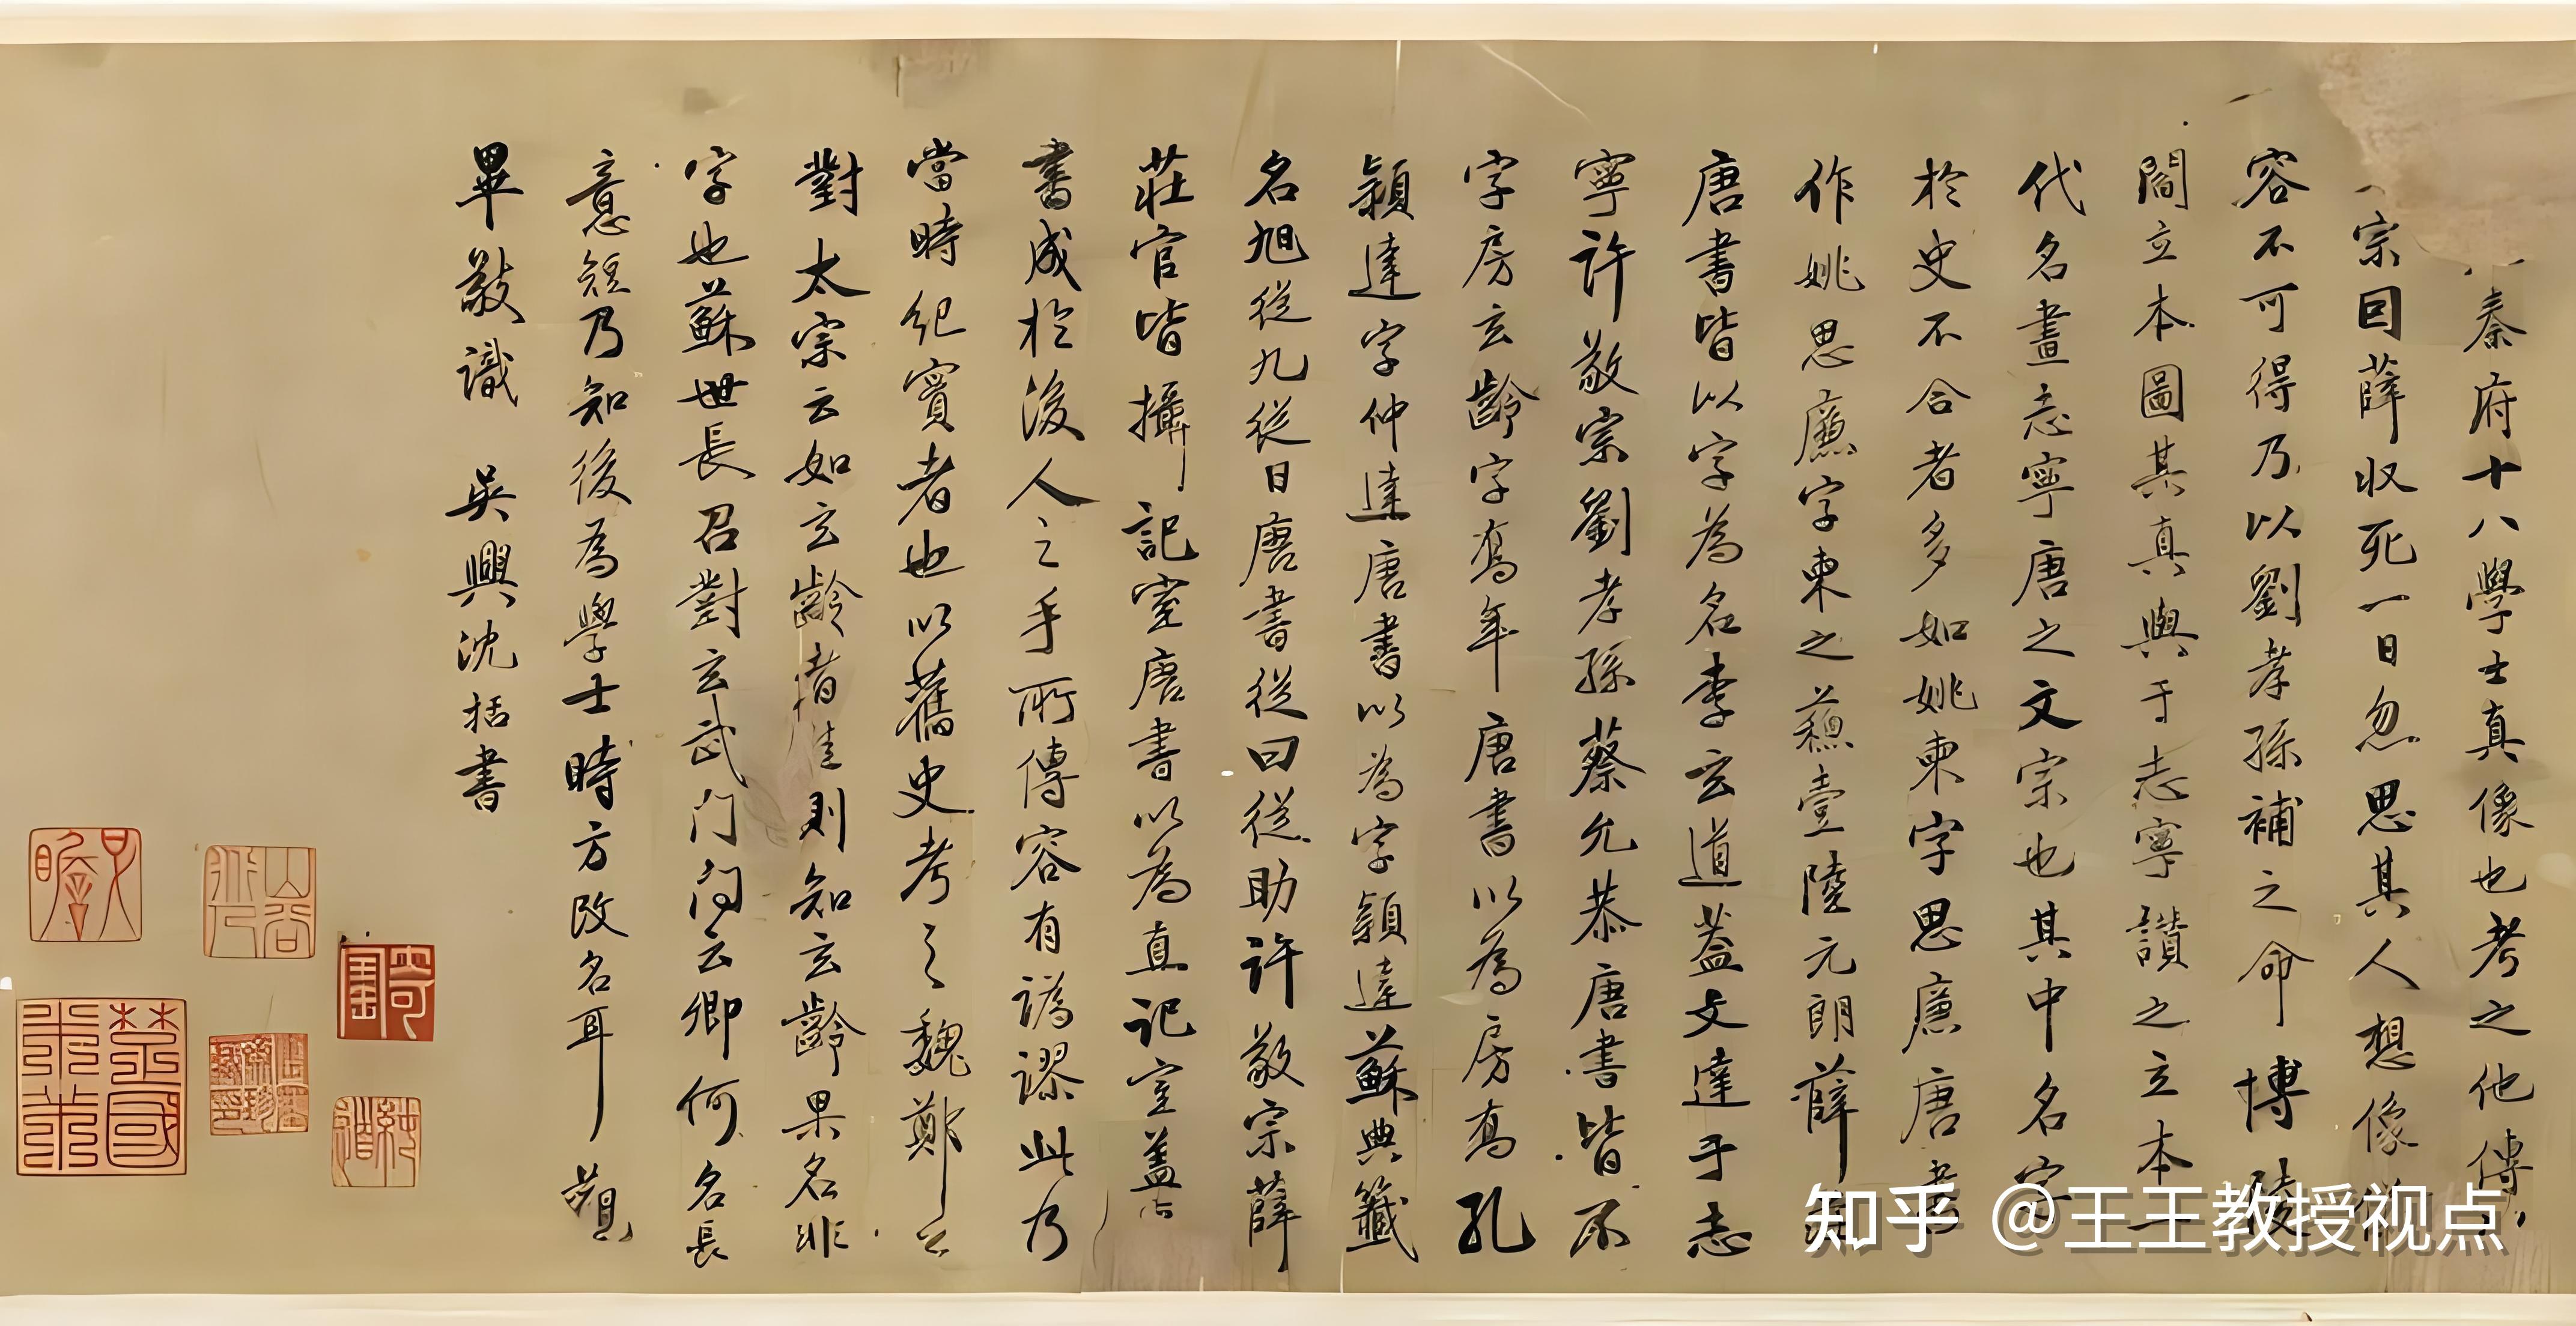 秦府十八學士真像也考之他傳
宗因薛收死一日忽思其人想像
容不可得乃以劉孝孫補之命博陵
閻立本圖其真與于志寧讚之立本一
代名畫志寧唐之文宗也其中名字
於史不合者多如姚柬字思廉唐書
作姚思廉字柬之蘇壹陸元朗薛
唐書皆以字為名李玄道蓋文達于志
寧許敬宗劉孝孫蔡允恭唐書皆不
字房玄齡字喬年唐書以為房喬孔
穎達字仲達唐書以為字穎達蘇典籤
名旭從九從日唐書從曰從助許敬宗薛
莊官皆攝記室唐書以為直記室蓋唐
書成於後人之手所傳容有譌謬此乃
當時紀實者也以舊史考之魏鄭公
對太宗云如玄齡者佳則知玄齡果名非
字也蘇世長召對玄武門問云卿何名長
意短乃知後為學士時方改名耳 觀
畢敬識 吳興沈括書
子瞻
山谷
楚國米芾
知乎 @王王教授视点